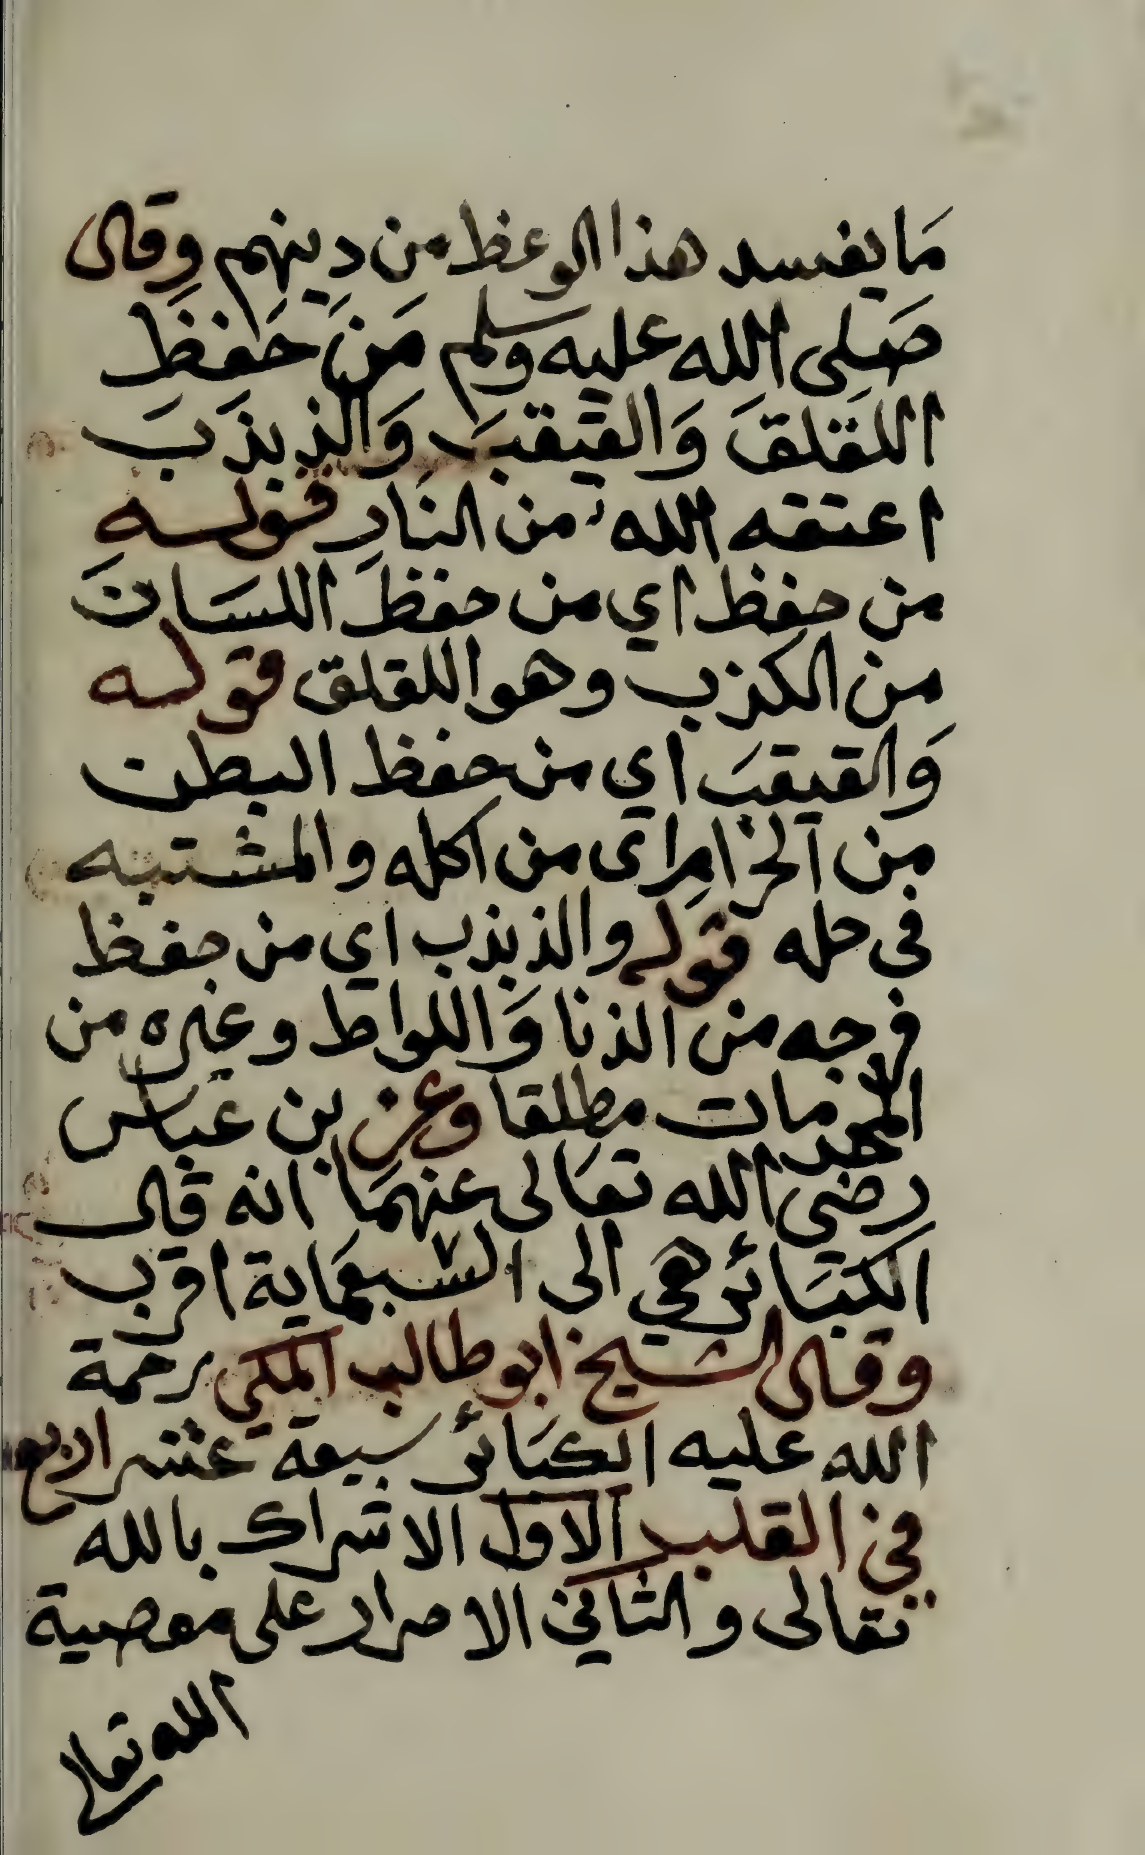 مَا يفسد هذا الوعظ من دينهم وقال
صَلى الله عليه وسلم مَن حَفظَ
اللقلقَ وَالقيقبَ وَالذبذَبَ
اعتقه الله من النَارِ قوله
من حفظ اي من حفظَ اللسَانَ
من الكزب وهو اللقلق قوله
وَالقيقبَ اي من حفظ البطن
من الحَرَامِ اى من اكله والمشتبه
فى حله قوله والذبذب اي من حفظ
فرجه من الزنا وَاللواط وغيره من
المحرمات مطلقا وعن بن عَباس
رضى الله تعَالى عنهمَا انه قال
الكبَائر هي الى السَبعمَاية اقرب
وقال الشيخ ابو طالب المكي رحمة
الله عليه الكبَائر سبعة عشر اربع
في القلب الاول الاشراك بالله
تعالى والثاني الاصرار على معصية
الله تعالى